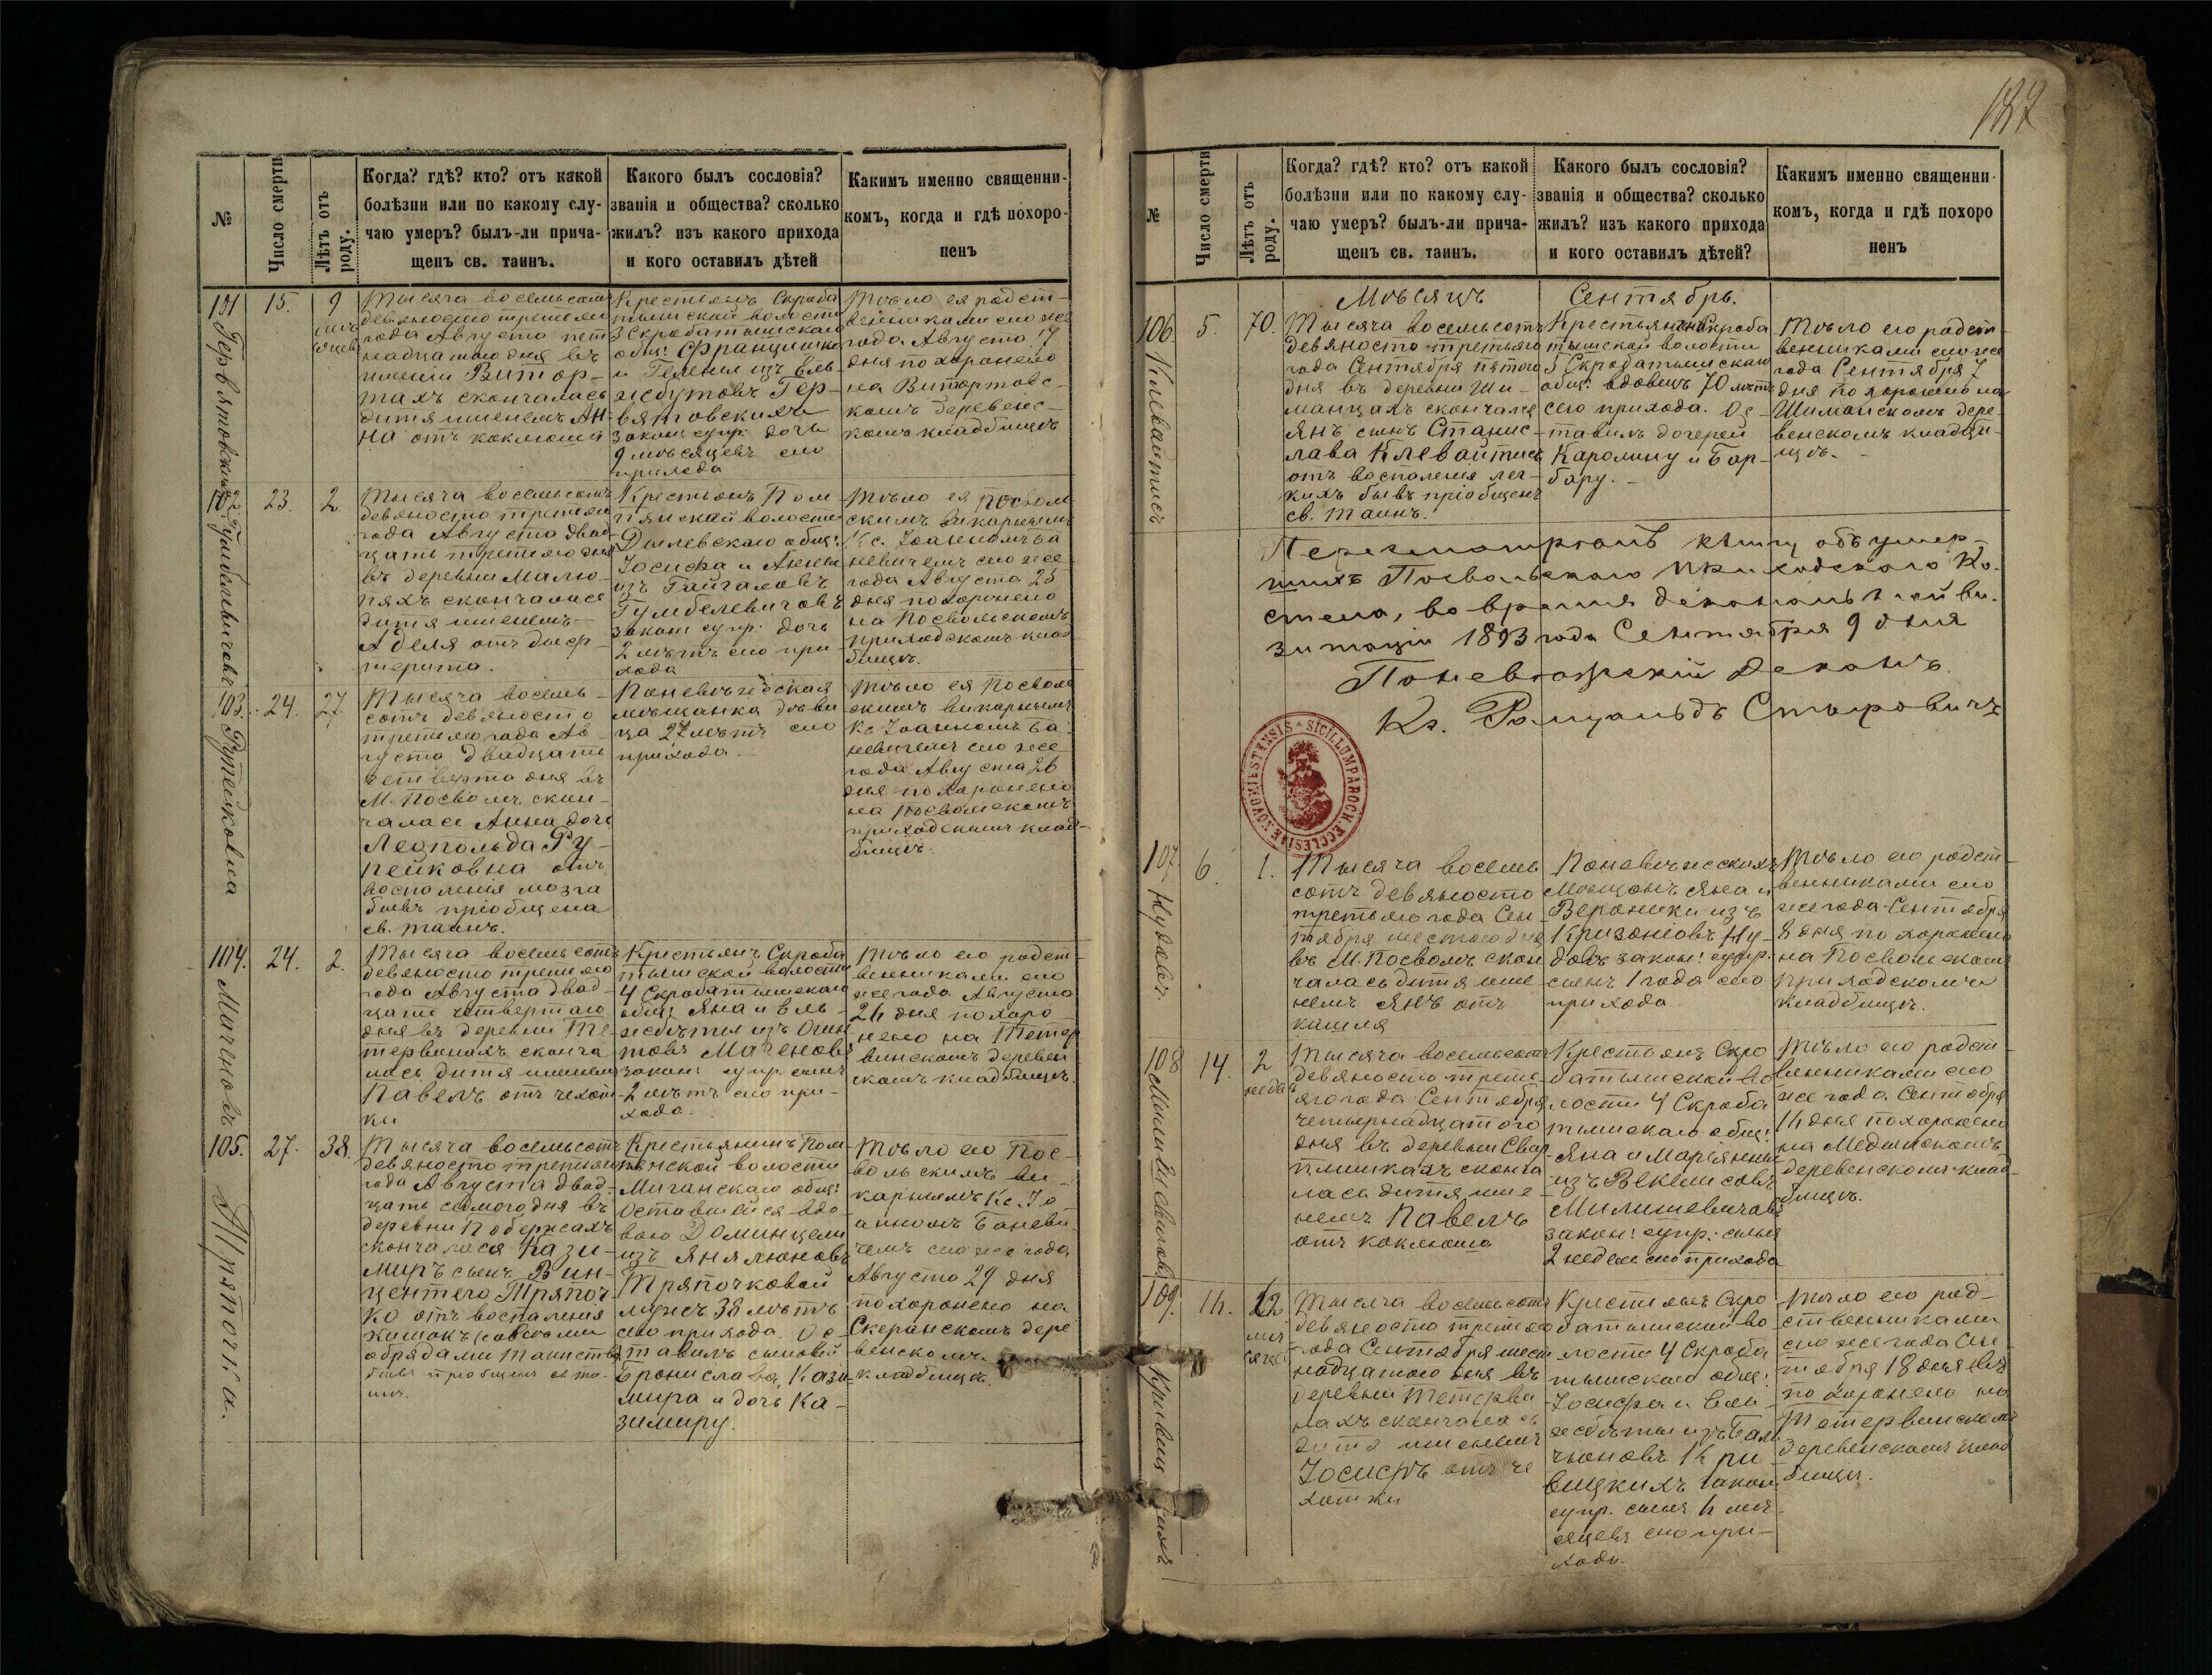 №
Число смерти
Лѣтъ отъ роду.
Когда? гдѣ? кто? отъ какой
болѣзни или по какому слу-
чаю умеръ? былъ-ли прича-
щенъ св. таинъ.
Какого былъ сословія?
званія и общества? сколько
жилъ? изъ какого прихода
и кого оставилъ дѣтей
Какимъ именно священни-
комъ, когда и гдѣ похоро-
ненъ
101
15.
9
мѣс
яцевъ
Тысяча восемьсотъ
девяносто третьяго
года Августа пят
надцатаго дня въ
имѣніи Витор-
тахъ скончалась
дитя именемъ Ан-
на отъ коклюша
Крестьянъ Скроба
тышской волости
3 Скробатышскаго
общ: Франтишка
и Гелены изъ Ель
жбутовъ Гер-
вятовскихъ
закон: супр: дочь
9 мѣсяцевъ сего
прихода
Тѣло ея родст-
венниками сего же
года Августа 17
дня похоронено
на Витортовс-
комъ деревенс-
комъ кладбищѣ
102
23.
2.
Тысяча восемьсотъ
девяносто третьяго
года Августа двад
цать третьяго дня
въ деревни Малю-
пяхъ скончалась
дитя именемъ
Аделя отъ диф-
терита.
Крестьянъ Пом
пянской волости
Дылевскаго общ:
Іосифа и Анны
изъ Гайгаловъ
Гумбелевичовъ
закон: супр: дочь
2 лѣтъ сего при
хода
Тѣло ея Посволь
скимъ викарнымъ
Кс. Іоанномъ Ба
невичемъ сего же
года Августа 25
дня похоронено
на Посвольскомъ
приходскомъ клад
бищѣ.
103.
24.
27.
Тысяча восемь-
сотъ девяносто
третьяго года Ав-
густа двадцать
четверто дня въ
М. Посволѣ скон-
чалась Анна дочь
Леопольда Ру-
пейковна отъ
воспаленія мозга
бывъ пріобщена
св. таинъ.
Поневѣжская
мѣщанка дѣви
ца 27 лѣтъ сего
прихода.
Тѣло ея Посволь
скимъ викарнымъ
Кс Іоанномъ Ба
невичемъ сего же
года Августа 26
дня похоронено
на Посвольскомъ
приходскомъ клад-
бищѣ.
104.
24.
2.
Тысяча восемьсотъ
девяносто третьяго
года Августа двад-
цать четвертаго
дня въ деревни Те-
тервинахъ сконча
лась дитя именемъ
Павелъ отъ чехот-
ки
Крестьянъ Скроба
тышской волости
4 Скробатышскаго
общ: Яна и Ель-
жбѣты изъ
Маченовъ
закон: супр. сынъ
2 лѣтъ сего при-
хода.
Тѣло его родст-
венниками сего
же года Августа
26 дня похоро-
нено на Тетер
винскомъ деревен
скомъ кладбищѣ.
105.
27.
38.
Тысяча восемьсотъ
девяносто третьяго
года Августа двад-
цать седьмого дня въ
деревни Побержахъ
скончался Кази-
миръ сынъ Вин-
центего Тряпоч-
ко отъ воспаленія
кишокъ со всѣми
обрядами таинства
бывъ пріобщенъ св та-
инъ.
Крестьянинъ Пом
пянской волости
Мичанскаго общ:
Оставшейся вдо-
вою Доминицели
изъ Янялюновъ
Тряпочковой
мужъ 38 лѣтъ
сего прихода. Ос-
тавилъ сыновей
Бронислава, Кази-
мира и дочь Ка-
зимиру.
Тѣло его Пос-
вольскимъ ви-
карнымъ Кс. Іо
анномъ Баневи
чемъ сего же года
Августа 29 дня
похоронено на
Скеранскомъ дере
венскомъ
кладбищѣ.
Рупейковна
Маченовъ
Тряпочка.
187
№
Число смерти
Лѣтъ отъ роду.
Когда? гдѣ? кто? отъ какой
болѣзни или по какому слу-
чаю умеръ? былъ-ли прича-
щенъ св. таинъ.
Какого былъ сословія?
званія и общества? сколько
жилъ? изъ какого прихода
и кого оставилъ дѣтей?
Какимъ именно священни-
комъ, когда и гдѣ похоро
ненъ
Мѣсяцъ Сентябрь.
106.
Клевайтисъ
5.
70.
Тысяча восемьсотъ
девяносто третьяго
года Сентября пятаго
дня въ деревни Ши-
манцахъ скончался
Янъ сынъ Станис-
лава Клевайтисъ
отъ воспаленія лег-
кихъ бывъ пріобщенъ
св. таинъ.
Крестьянинъ Скроба
тышской волости
3 Скробатышскаго
общ: вдовецъ 70 лѣтъ
сего прихода. Ос-
тавилъ дочерей
Каролину и Бар-
бару.
Тѣло его родст-
венниками сего же
года Сентября 7
дня похоронено на
Шиманскомъ дере-
венскомъ кладби-
щѣ.
Пересматривалъ книгу объ умер-
шихъ Посвольскаго приходскаго Ко-
стела, во время деканальной ви-
зитаціи 1893 года Сентября 9 дня
Поневѣжскій Деканъ
Кс. Ромуальдъ
SIGILLUM PAROCH. ECCLESIAE NOVOMIESTENSIS
107.
6.
1.
Тысяча восемь
сотъ девяносто
третьяго года Сен-
тября шестого дня
въ М. Посволѣ скон
чалась дитя име
немъ Янъ отъ
кашля
Поневѣжскихъ
Мѣщанъ Яна и
Вероники изъ
Ну-
довъ закон: супр.
сынъ 1 года сего
прихода
Тѣло его родст-
венниками сего
же года Сентября
8 дня похоронено
на Посвольскомъ
приходскомъ
кладбищѣ.
108
14.
2
недѣл
Тысяча восемьсотъ
девяносто треть-
яго года Сентября
четырнадцатого
дня въ деревни Свир-
плишкахъ сконча
лась дитя име-
немъ Павелъ
отъ коклюша
Крестьянъ Скро
батышской во
лости 4 Скроба
тышскаго общ:
Яна и Маріянны
изъ Векшисовъ
Милишевичовъ
закон: супр: сынъ
2 недѣли сего прихода
Тѣло его родст-
венниками сего
же года Сентября
16 дня похоронено
на
деревенскомъ клад-
бищѣ.
109.
16.
мѣ
сяцевъ
Тысяча восемьсотъ
девяносто третьяго
года Сентября шест-
надцатого дня въ
деревни Тетерви
нахъ скончалась
дитя именемъ
Іосифъ отъ че
хотки
Крестьянъ Скро
батышской во
лости 4 Скроба
тышскаго общ:
Іосифа и Ель
жбѣты изъ
закон
супр. сынъ 6 мѣ-
сяцевъ сего при-
хода.
Тѣло его род-
ственниками
сего же года Сен
тября 18 дня
похоронено на
Тетервинскомъ
деревенскомъ клад
бищѣ.